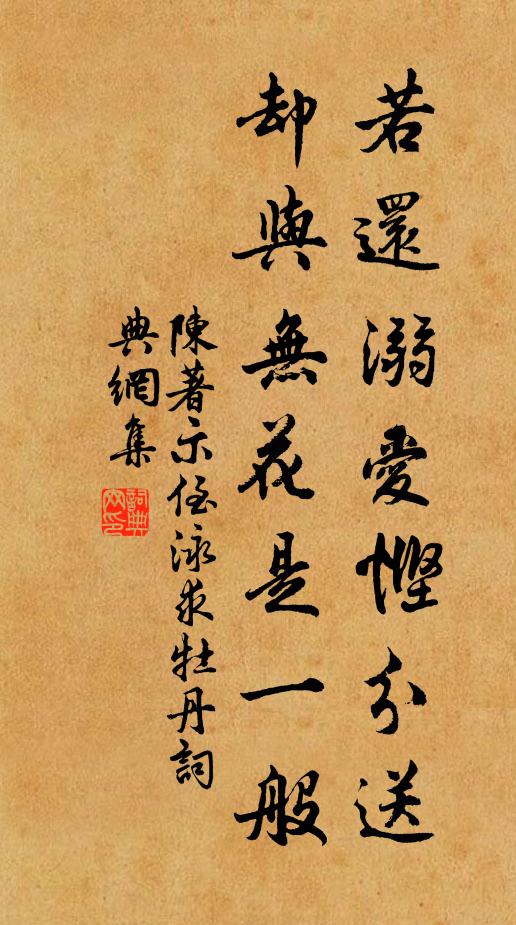 若還溺愛慳分送
却與無花是一般
陳著示侄泳求牡丹詞
典網集
詞典網印